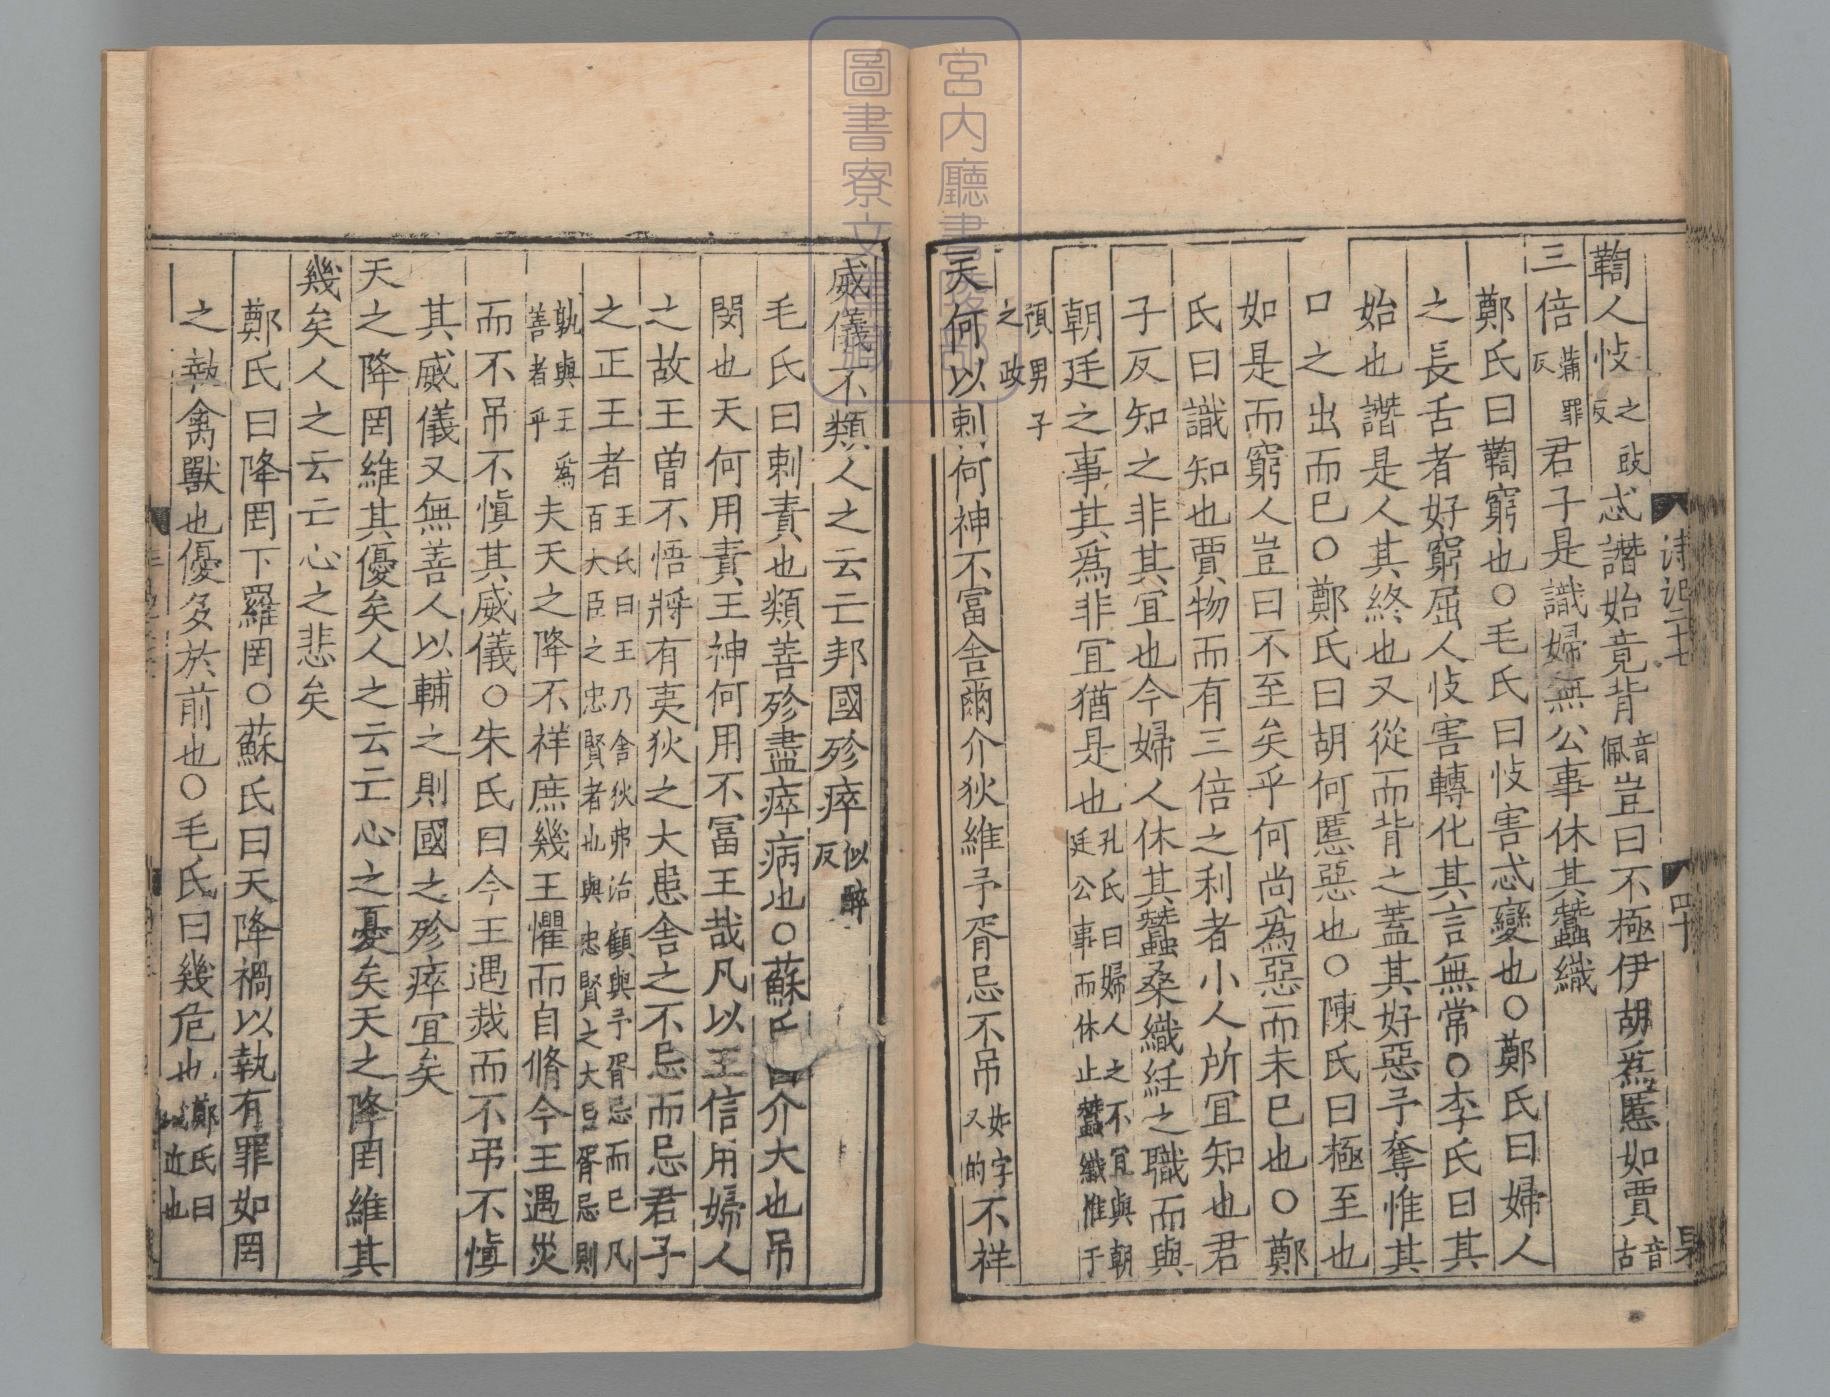 鞫人忮之豉反忒譖始竟背音佩豈曰不極伊胡爲慝如賈音古
三倍蒲罪反君子是識婦無公事休其蠶織
鄭氏曰鞫窮也○毛氏曰忮害忒變也○鄭氏曰婦人
之長舌者好窮屈人忮害轉化其言無常○李氏曰其
始也譖是人其終也又從而背之蓋其好惡予奪惟其
口之出而已○鄭氏曰胡何慝惡也○陳氏曰極至也
如是而窮人豈曰不至矣乎何尚爲惡而未已也○鄭
氏曰識知也賈物而有三倍之利者小人所宜知也君
子反知之非其宜也今婦人休其蠶桑織紝之職而與
朝廷之事其爲非宜猶是也孔氏曰婦人之不宜與朝廷公事而休止蠶織惟于
預男子之政
天何以刺何神不富舍爾介狄維予胥忌不吊如字又的不祥
威儀不類人之云亡邦國殄瘁似醉反
毛氏曰刺責也類善殄盡瘁病也○蘇氏曰介大也吊
閔也天何用責王神何用不冨王哉凡以王信用婦人
之故王曾不悟將有夷狄之大患舍之不忌而忌君子
之正王者王氏曰王乃舍狄弗治顧與予胥忌而已凡百大臣之忠賢者也與忠賢之大臣胥忌則
孰與王爲善者乎夫天之降不祥庶幾王懼而自脩今王遇災
而不吊不愼其威儀○朱氏曰今王遇烖而不弔不愼
其威儀又無善人以輔之則國之殄瘁宜矣
天之降罔維其優矣人之云亡心之憂矣天之降罔維其
幾矣人之云亡心之悲矣
鄭氏曰降罔下羅罔○蘇氏曰天降禍以執有罪如罔
之執禽獸也優多於前也○毛氏曰幾危也鄭氏曰幾近也
詩記二十七
四十
宮内廳書陵部
圖書寮文庫藏